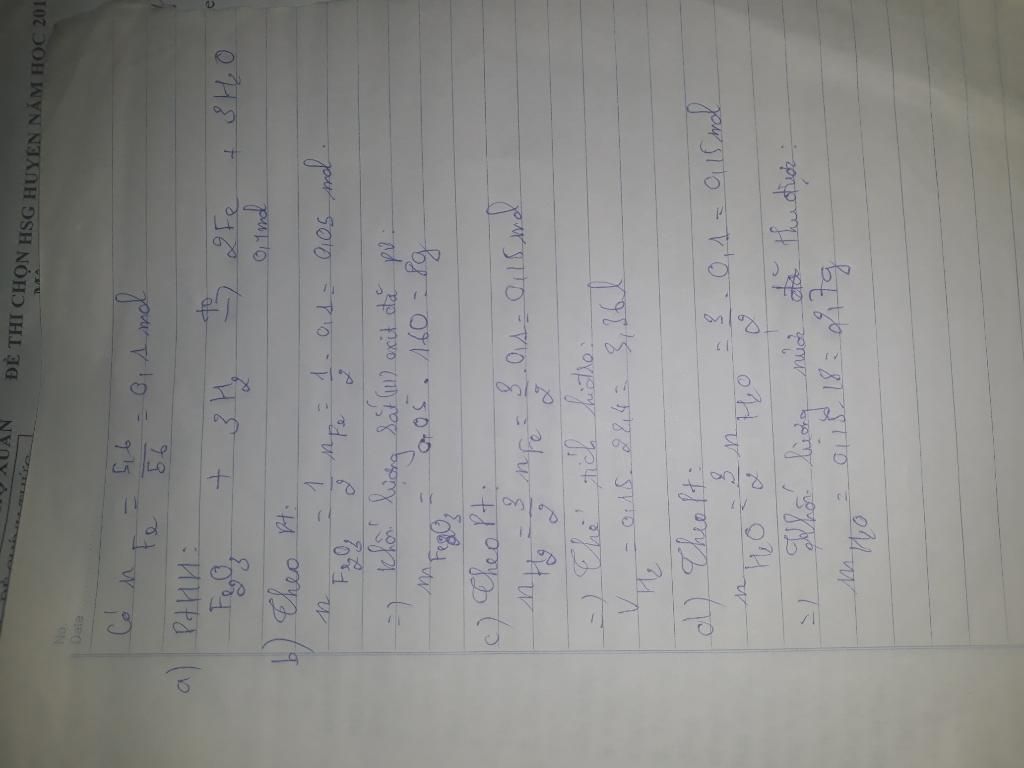 ĐỀ THI CHỌN HSG HUYỆN NĂM HỌC 201
XUÂN
No.
Date
Có n Fe = 5,6/56 = 0,1 mol
a) PTHH:
Fe2O3 + 3H2 t°→ 2Fe + 3H2O
0,1mol
b) Theo pt:
n Fe2O3 = 1/2 n Fe = 1/2 . 0,1 = 0,05 mol.
=) Khối lượng sắt(III) oxit đã pứ:
m Fe2O3 = 0,05 . 160 = 8g
c) Theo pt:
n H2 = 3/2 n Fe = 3/2 . 0,1 = 0,15 mol
=) Thể tích hiđro:
V H2 = 0,15 . 22,4 = 3,36l
d) Theo pt:
n H2O = 3/2 n H2O = 3/2 . 0,1 = 0,15 mol
=) Khối lượng nước đã thu được:
m H2O = 0,15 . 18 = 2,7g